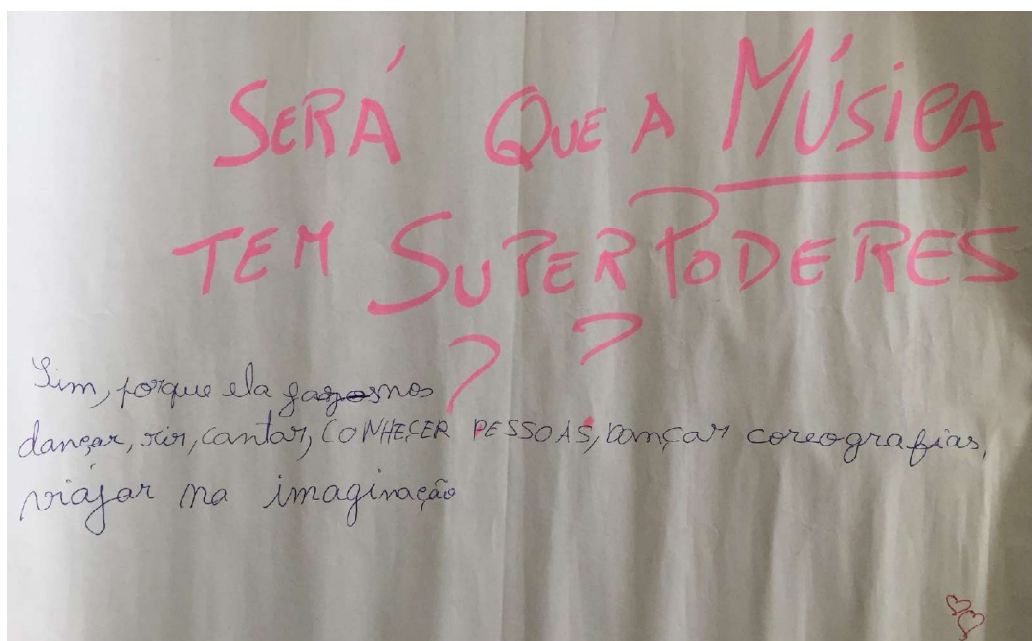 SERÁ QUE A MÚSICA
TEM SUPERPODERES
? ?
Sim, porque ela faz-nos
dançar, rir, cantar, CONHEÇER PESSOAS, DANÇAR coreografias,
viajar na imaginação